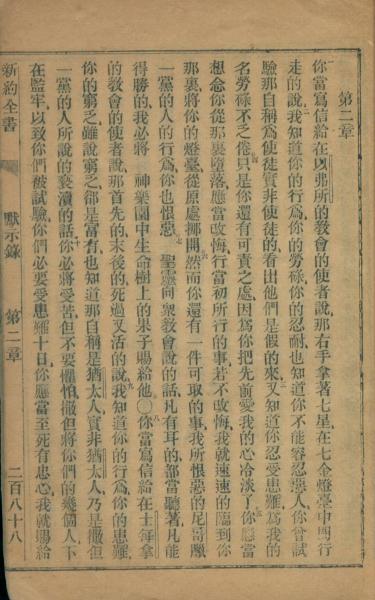 第二章
你當寫信給在以弗所的教會的使者說、那右手拏著七星、在七金燈臺中間行
走的說、我知道你的行爲、你的勞碌、你的忍耐、也知道你不能容忍惡人、你曾試
驗那自稱爲使徒實非使徒的、看出他們是假的來、又知道你忍受患難、爲我的
名勞碌不乏倦、只是你還有可責之處、因爲你把先前愛我的心冷淡了、你應當
想念你從那裏墮落、應當改悔、行當初所行的事、若不改悔、我就速速的臨到你
那裏、將你的燈臺、從原處挪開、然而你還有一件可取的事、我所恨惡的尼哥
一黨的人的行爲、你也恨惡、聖靈向衆教會說的話、凡有耳的、都當聽著、凡能
得勝的、我必將 神樂園中生命樹上的果子賜給他○你當寫信給在士每拿
的教會的使者說、那首先的、末後的、死過又活的說、我知道你的行爲、你的患難、
你的窮乏、雖說窮乏、卻是富有、也知道那自稱是猶太人、實非猶太人、乃是撒但
一黨的人所說的褻瀆的話、你必將受苦、但不要懼怕、撒但將你們的幾個人、下
在監牢、以致你們被試驗、你們必要受患難十日、你應當至死有忠心、我就賜給
新約全書 默示錄 第二章 二百八十八